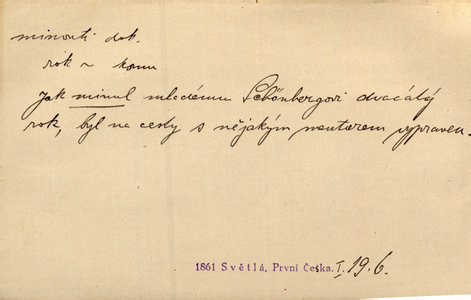 minouti dok.
rok ~ komu
Jak minul mladému Schönbergovi dvacátý
rok, byl na cesty s nějakým mentorem vypraven.
1861 Světlá, První Češka. I, 19. 6.